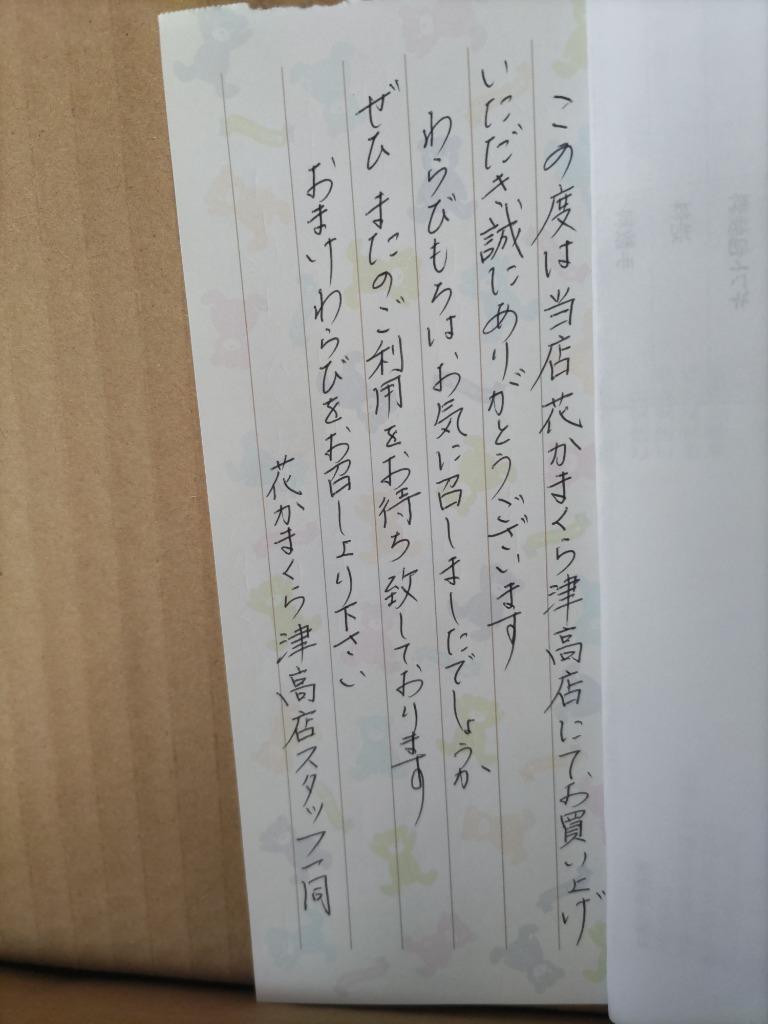 この度は当店花かまくら津高店にてお買い上げ
いただき誠にありがとうございます
わらびもちは、お気に召しましたでしょうか
ぜひ またのご利用をお待ち致しております
おまけわらびをお召し上り下さい
花かまくら津高店スタッフ一同